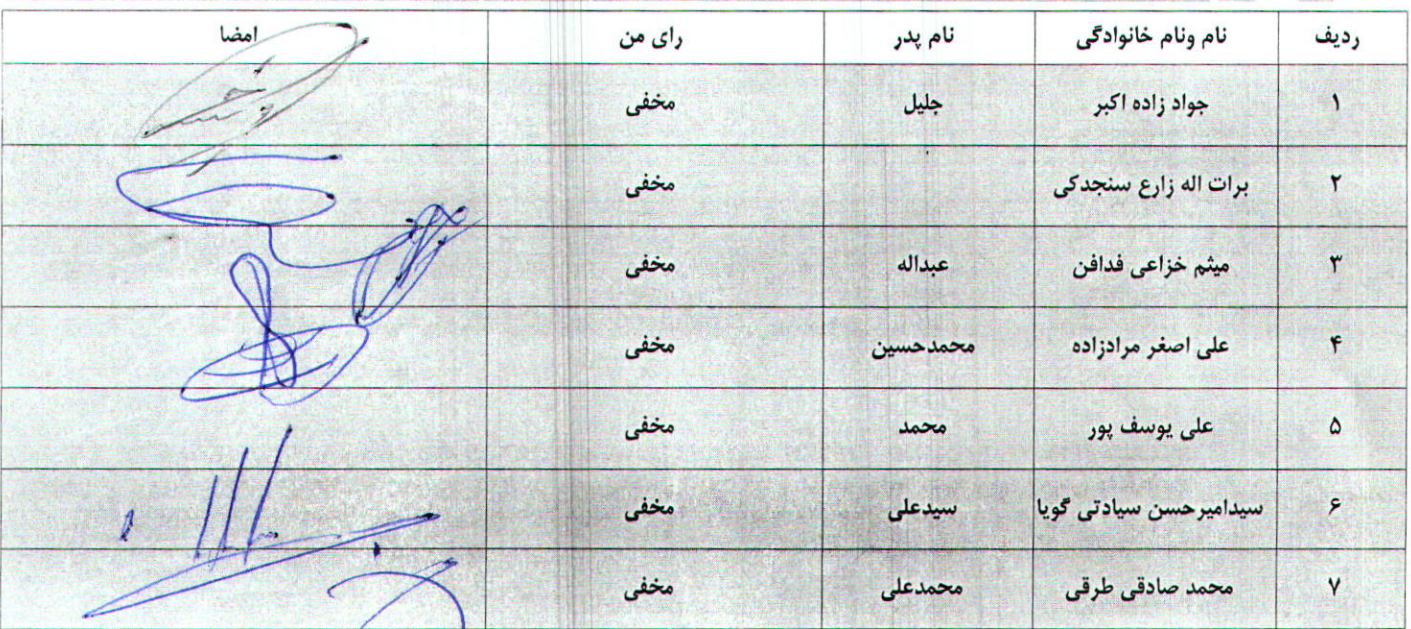 ردیف نام ونام خانوادگی نام پدر رای من امضا
۱ جواد زاده اکبر جلیل مخفی
۲ برات اله زارع سنجدکی مخفی
۳ میثم خزاعی فدافن عبداله مخفی
۴ علی اصغر مرادزاده محمدحسین مخفی
۵ علی یوسف پور محمد مخفی
۶ سیدامیرحسن سیادتی گویا سیدعلی مخفی
۷ محمد صادقی طرقی محمدعلی مخفی